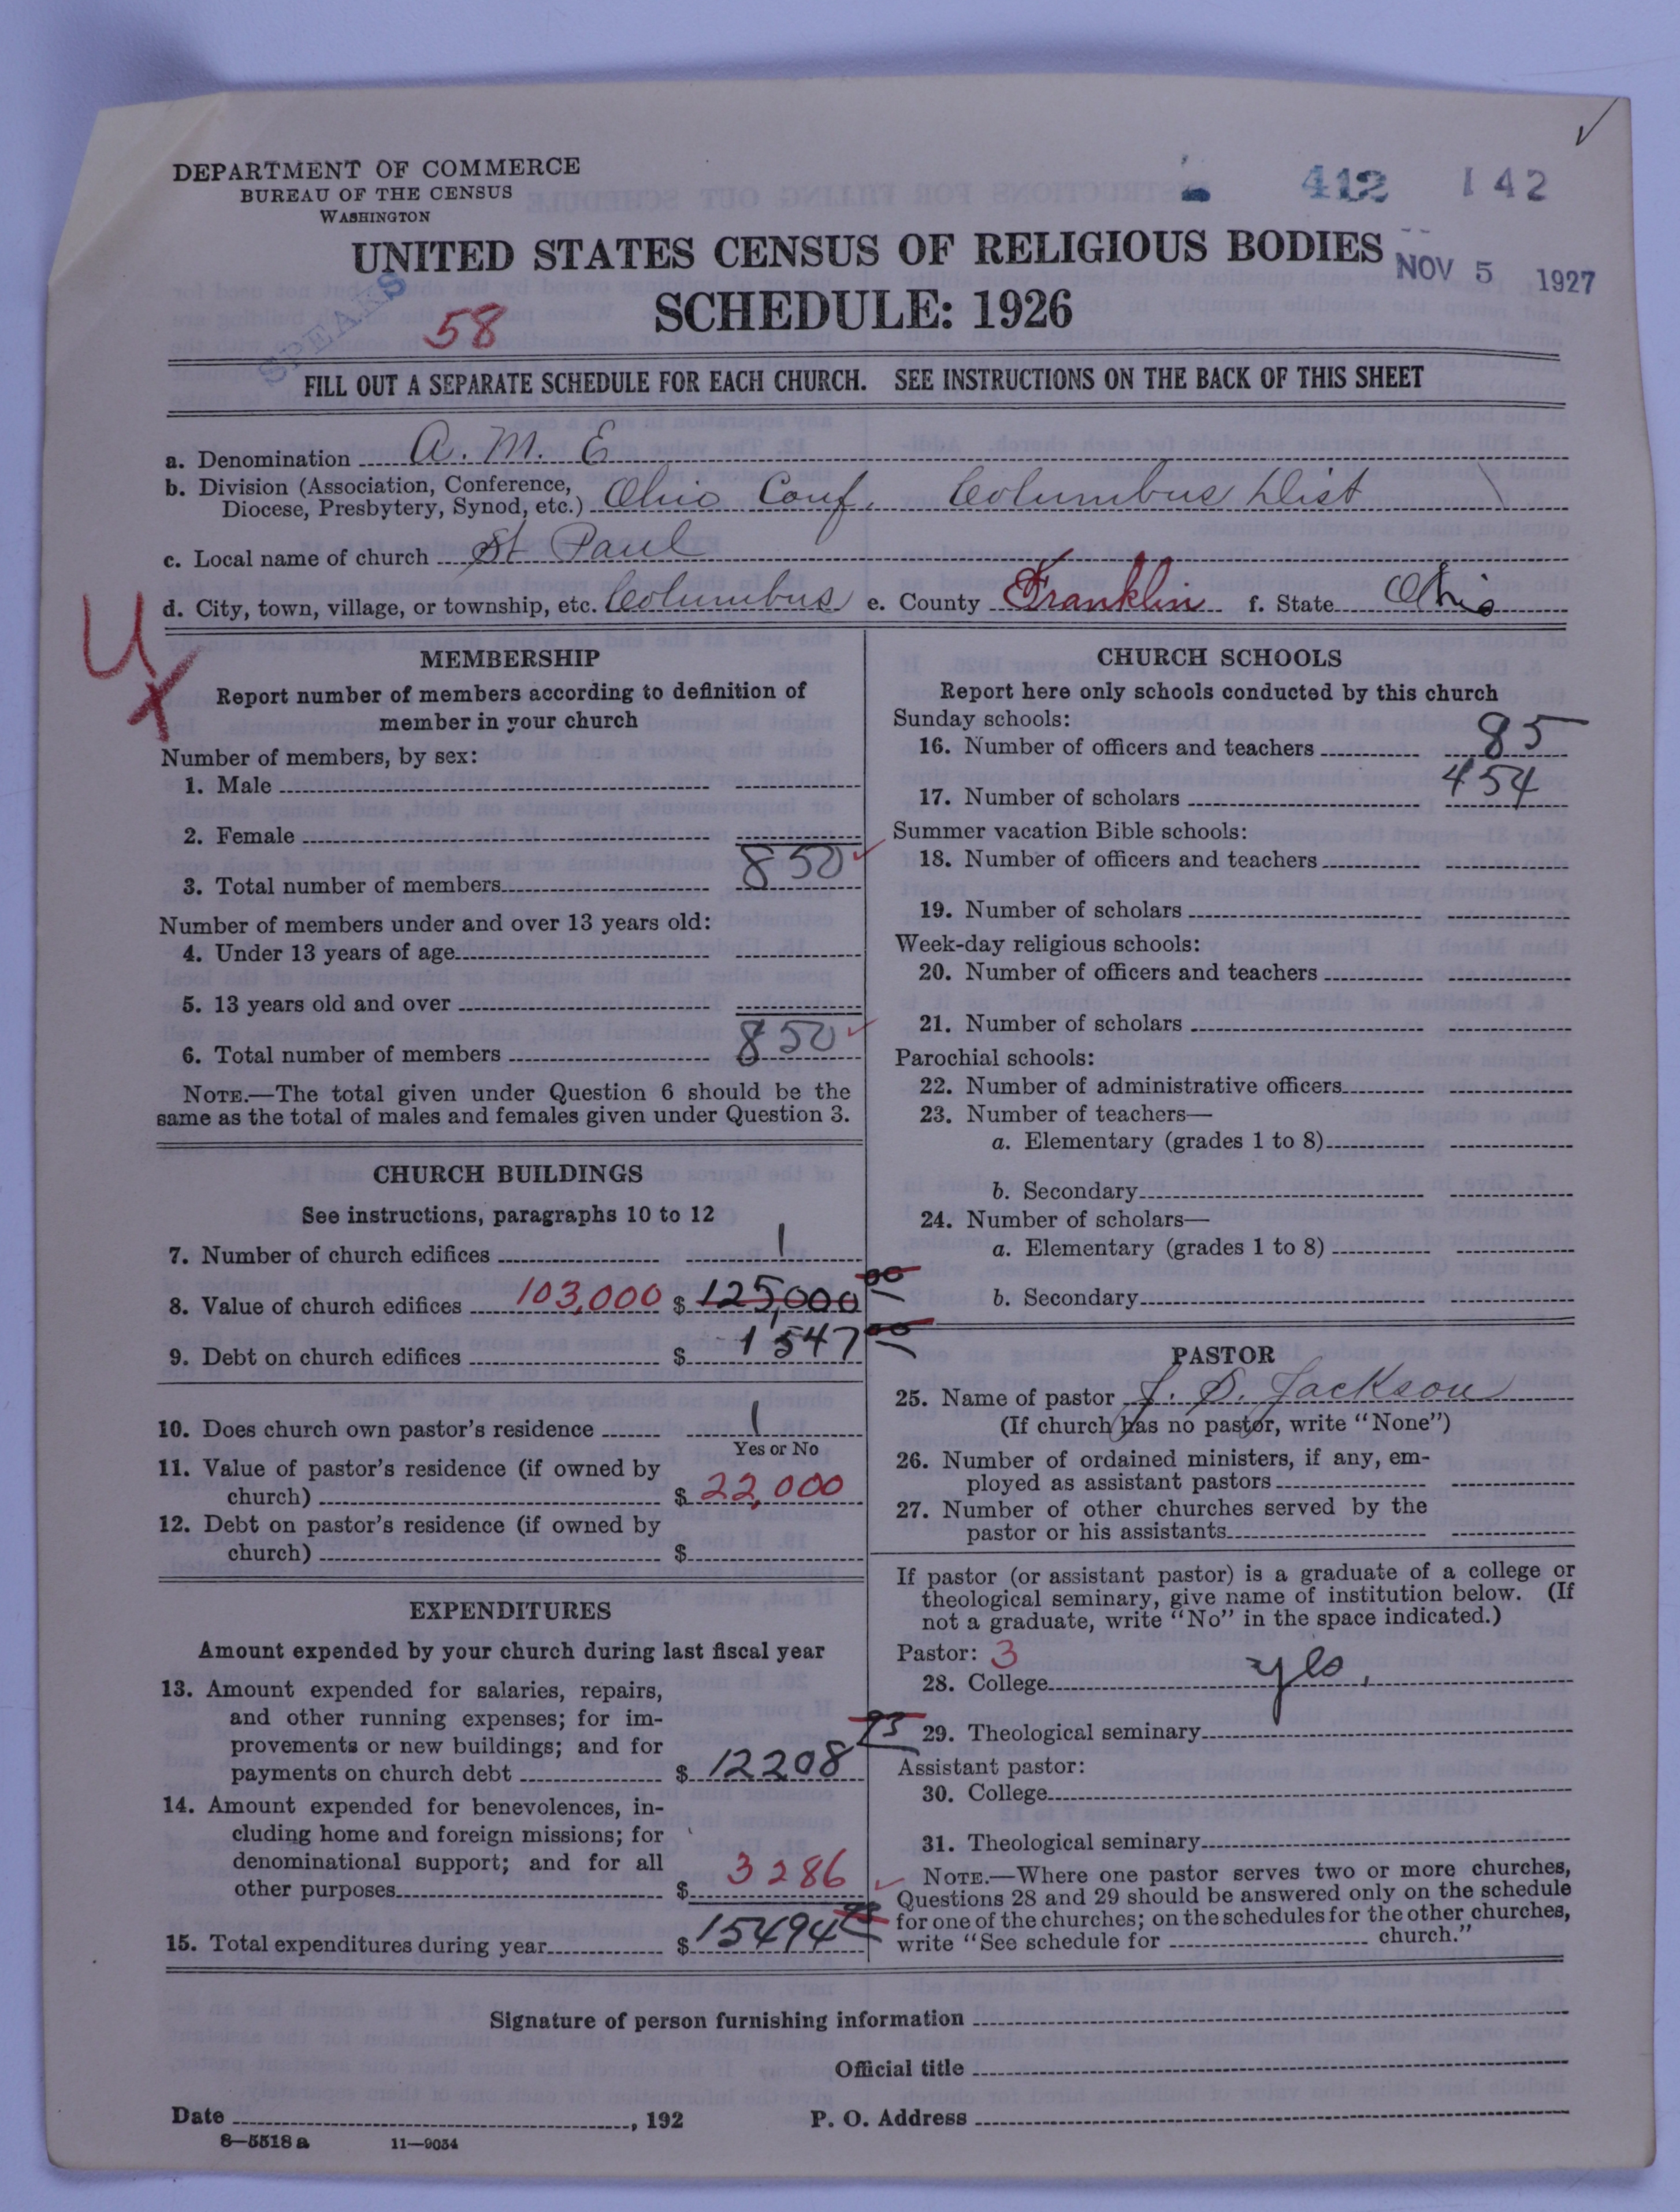 DEPARTMENT OF COMMERCE
BUREAU OF THE CENSUS
WASHINGTON
412 142
UNITED STATES CENSUS OF RELIGIOUS BODIES
NOV 5 1927
SCHEDULE: 1926
SPEAKS
58
FILL OUT A SEPARATE SCHEDULE FOR EACH CHURCH. SEE INSTRUCTIONS ON THE BACK OF THIS SHEET
a. Denomination A. M. E
b. Division (Association, Conference,
Diocese, Presbytery, Synod, etc.) Ohio Conf. Columbus Dist
c. Local name of church St Paul
d. City, town, village, or township, etc. Columbus e. County Franklin f. State Ohio
MEMBERSHIP
Report number of members according to definition of
member in your church
Number of members, by sex:
1. Male
2. Female
3. Total number of members 850
Number of members under and over 13 years old:
4. Under 13 years of age
5. 13 years old and over
6. Total number of members 850
NOTE.—The total given under Question 6 should be the
same as the total of males and females given under Question 3.
CHURCH BUILDINGS
See instructions, paragraphs 10 to 12
7. Number of church edifices 1
8. Value of church edifices 103,000 $ 125,000 00
9. Debt on church edifices $ 1547 00
10. Does church own pastor's residence 1
Yes or No
11. Value of pastor's residence (if owned by
church) $ 22,000
12. Debt on pastor's residence (if owned by
church) $
EXPENDITURES
Amount expended by your church during last fiscal year
13. Amount expended for salaries, repairs,
and other running expenses; for im-
provements or new buildings; and for
payments on church debt $ 12208 93
14. Amount expended for benevolences, in-
cluding home and foreign missions; for
denominational support; and for all
other purposes $ 3286
15. Total expenditures during year $ 15494
CHURCH SCHOOLS
Report here only schools conducted by this church
Sunday schools:
16. Number of officers and teachers 85
17. Number of scholars 454
Summer vacation Bible schools:
18. Number of officers and teachers
19. Number of scholars
Week-day religious schools:
20. Number of officers and teachers
21. Number of scholars
Parochial schools:
22. Number of administrative officers
23. Number of teachers—
a. Elementary (grades 1 to 8)
b. Secondary
24. Number of scholars—
a. Elementary (grades 1 to 8)
b. Secondary
PASTOR
25. Name of pastor J. D. Jackson
(If church has no pastor, write "None")
26. Number of ordained ministers, if any, em-
ployed as assistant pastors
27. Number of other churches served by the
pastor or his assistants
If pastor (or assistant pastor) is a graduate of a college or
theological seminary, give name of institution below. (If
not a graduate, write "No" in the space indicated.)
Pastor: 3
28. College yes.
29. Theological seminary
Assistant pastor:
30. College
31. Theological seminary
NOTE.—Where one pastor serves two or more churches,
Questions 28 and 29 should be answered only on the schedule
for one of the churches; on the schedules for the other churches,
write "See schedule for church."
Signature of person furnishing information
Official title
Date , 192 P. O. Address
8—5518 a 11—9054